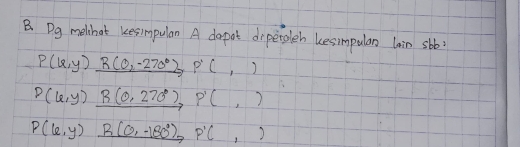 B. Dg melihat kesimpulan A dapat diperoleh kesimpulan lain sbb:
P(x,y) R(0,-270°) P'( , )
P(x,y) R(0,270°) P'( , )
P(x,y) R(0,-180°) P'( , )